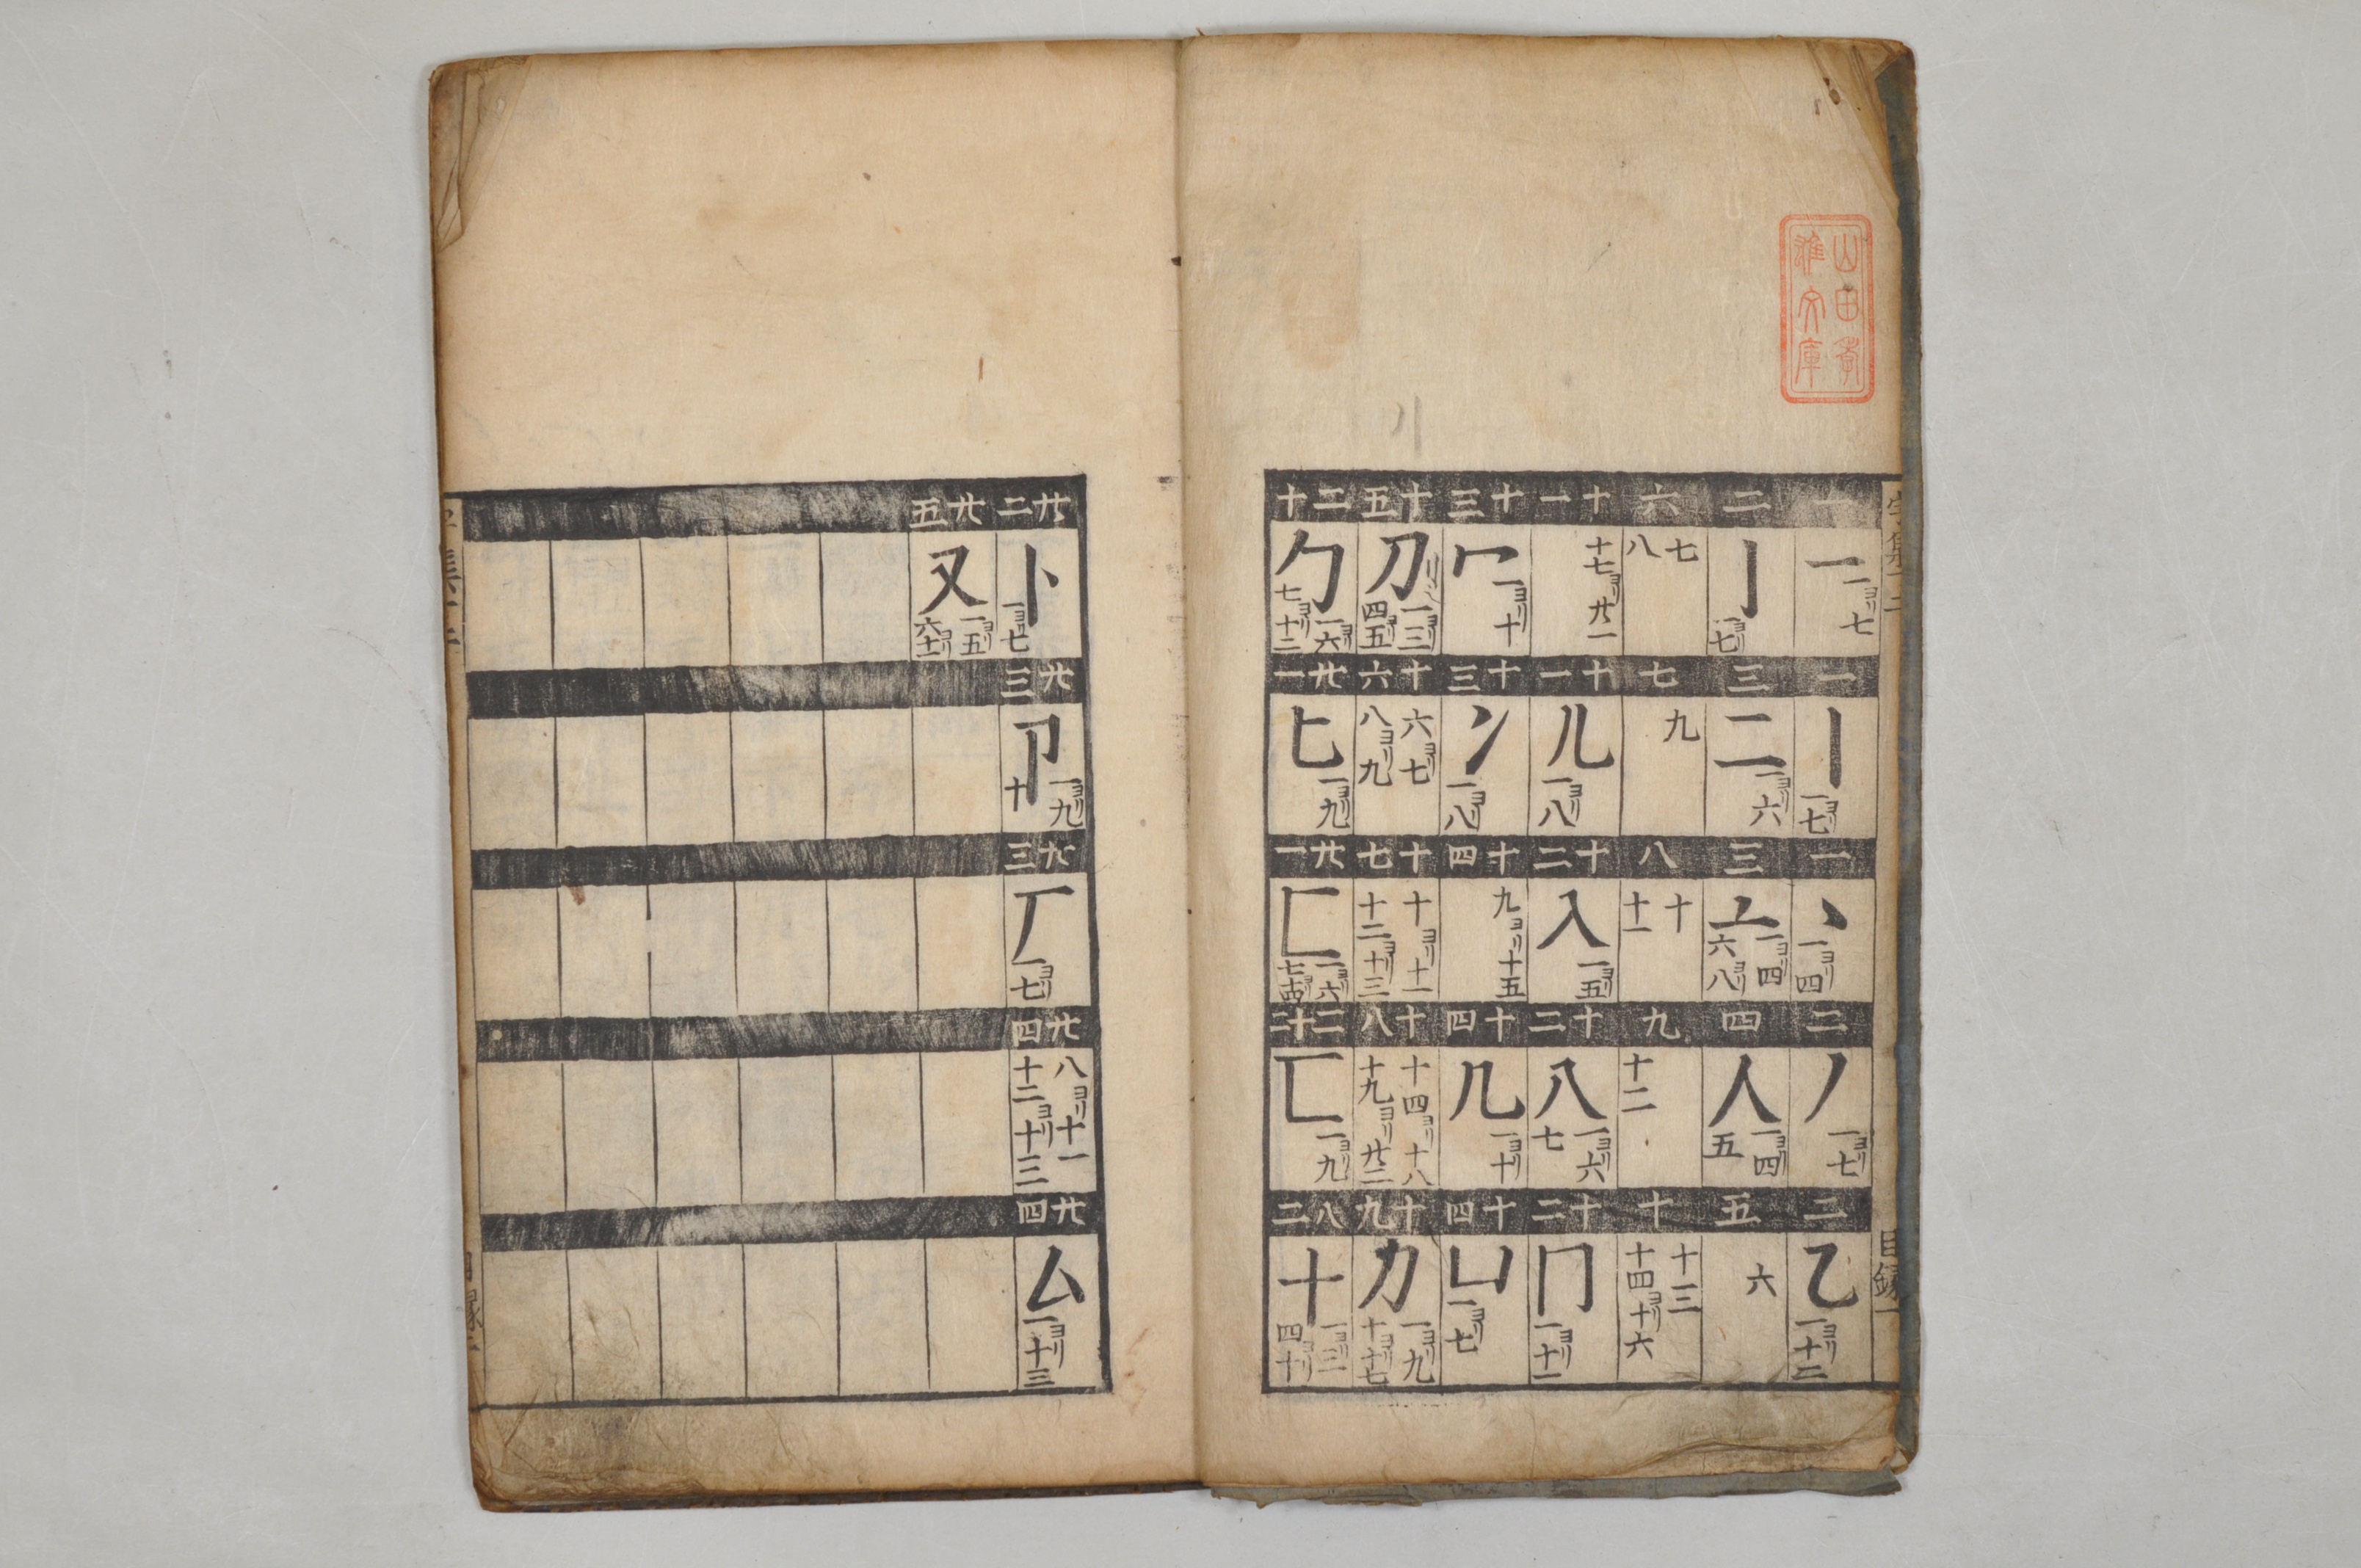 子集一二
目録一
山田孝
雄文庫
一
一 一ヨリ七
一
丨 一ヨリ七
一
丶 一ヨリ四
二
丿 一ヨリ七
二
乙 一ヨリ十二
二
亅 一ヨリ七
三
二 一ヨリ六
三
亠 一ヨリ四
六ヨリ八
四
人 一ヨリ四
五
五
六
六
七
八
七
九
八
十
十一
九
十二
十
十三
十四ヨリ十六
十一
十七ヨリ廿一
十一
儿 一ヨリ八
十二
入 一ヨリ五
十二
八 一ヨリ六
七
十二
冂 一ヨリ十一
十三
冖 一ヨリ十
十三
冫 一ヨリ八
十四
九ヨリ十五
十四
几 一ヨリ十
十四
凵 一ヨリ七
十五
刀 一ヨリ三
四ヨリ五
十六
六ヨリ七
八ヨリ九
十七
十ヨリ十一
十二ヨリ十三
十八
十四ヨリ十八
十九ヨリ廿二
十九
力 一ヨリ九
十ヨリ十七
二十
勹 一ヨリ六
七ヨリ十二
廿一
匕 一ヨリ九
廿一
匚 一ヨリ六
二十二
匸 一ヨリ九
十 一ヨリ三
四ヨリ十
廿二
卜 一ヨリ七
廿三
卩 一ヨリ九
十
廿三
厂 一ヨリ七
廿四
八ヨリ十一
十二ヨリ十三
廿四
厶 一ヨリ十三
廿五
又 一ヨリ五
六ヨリ十一